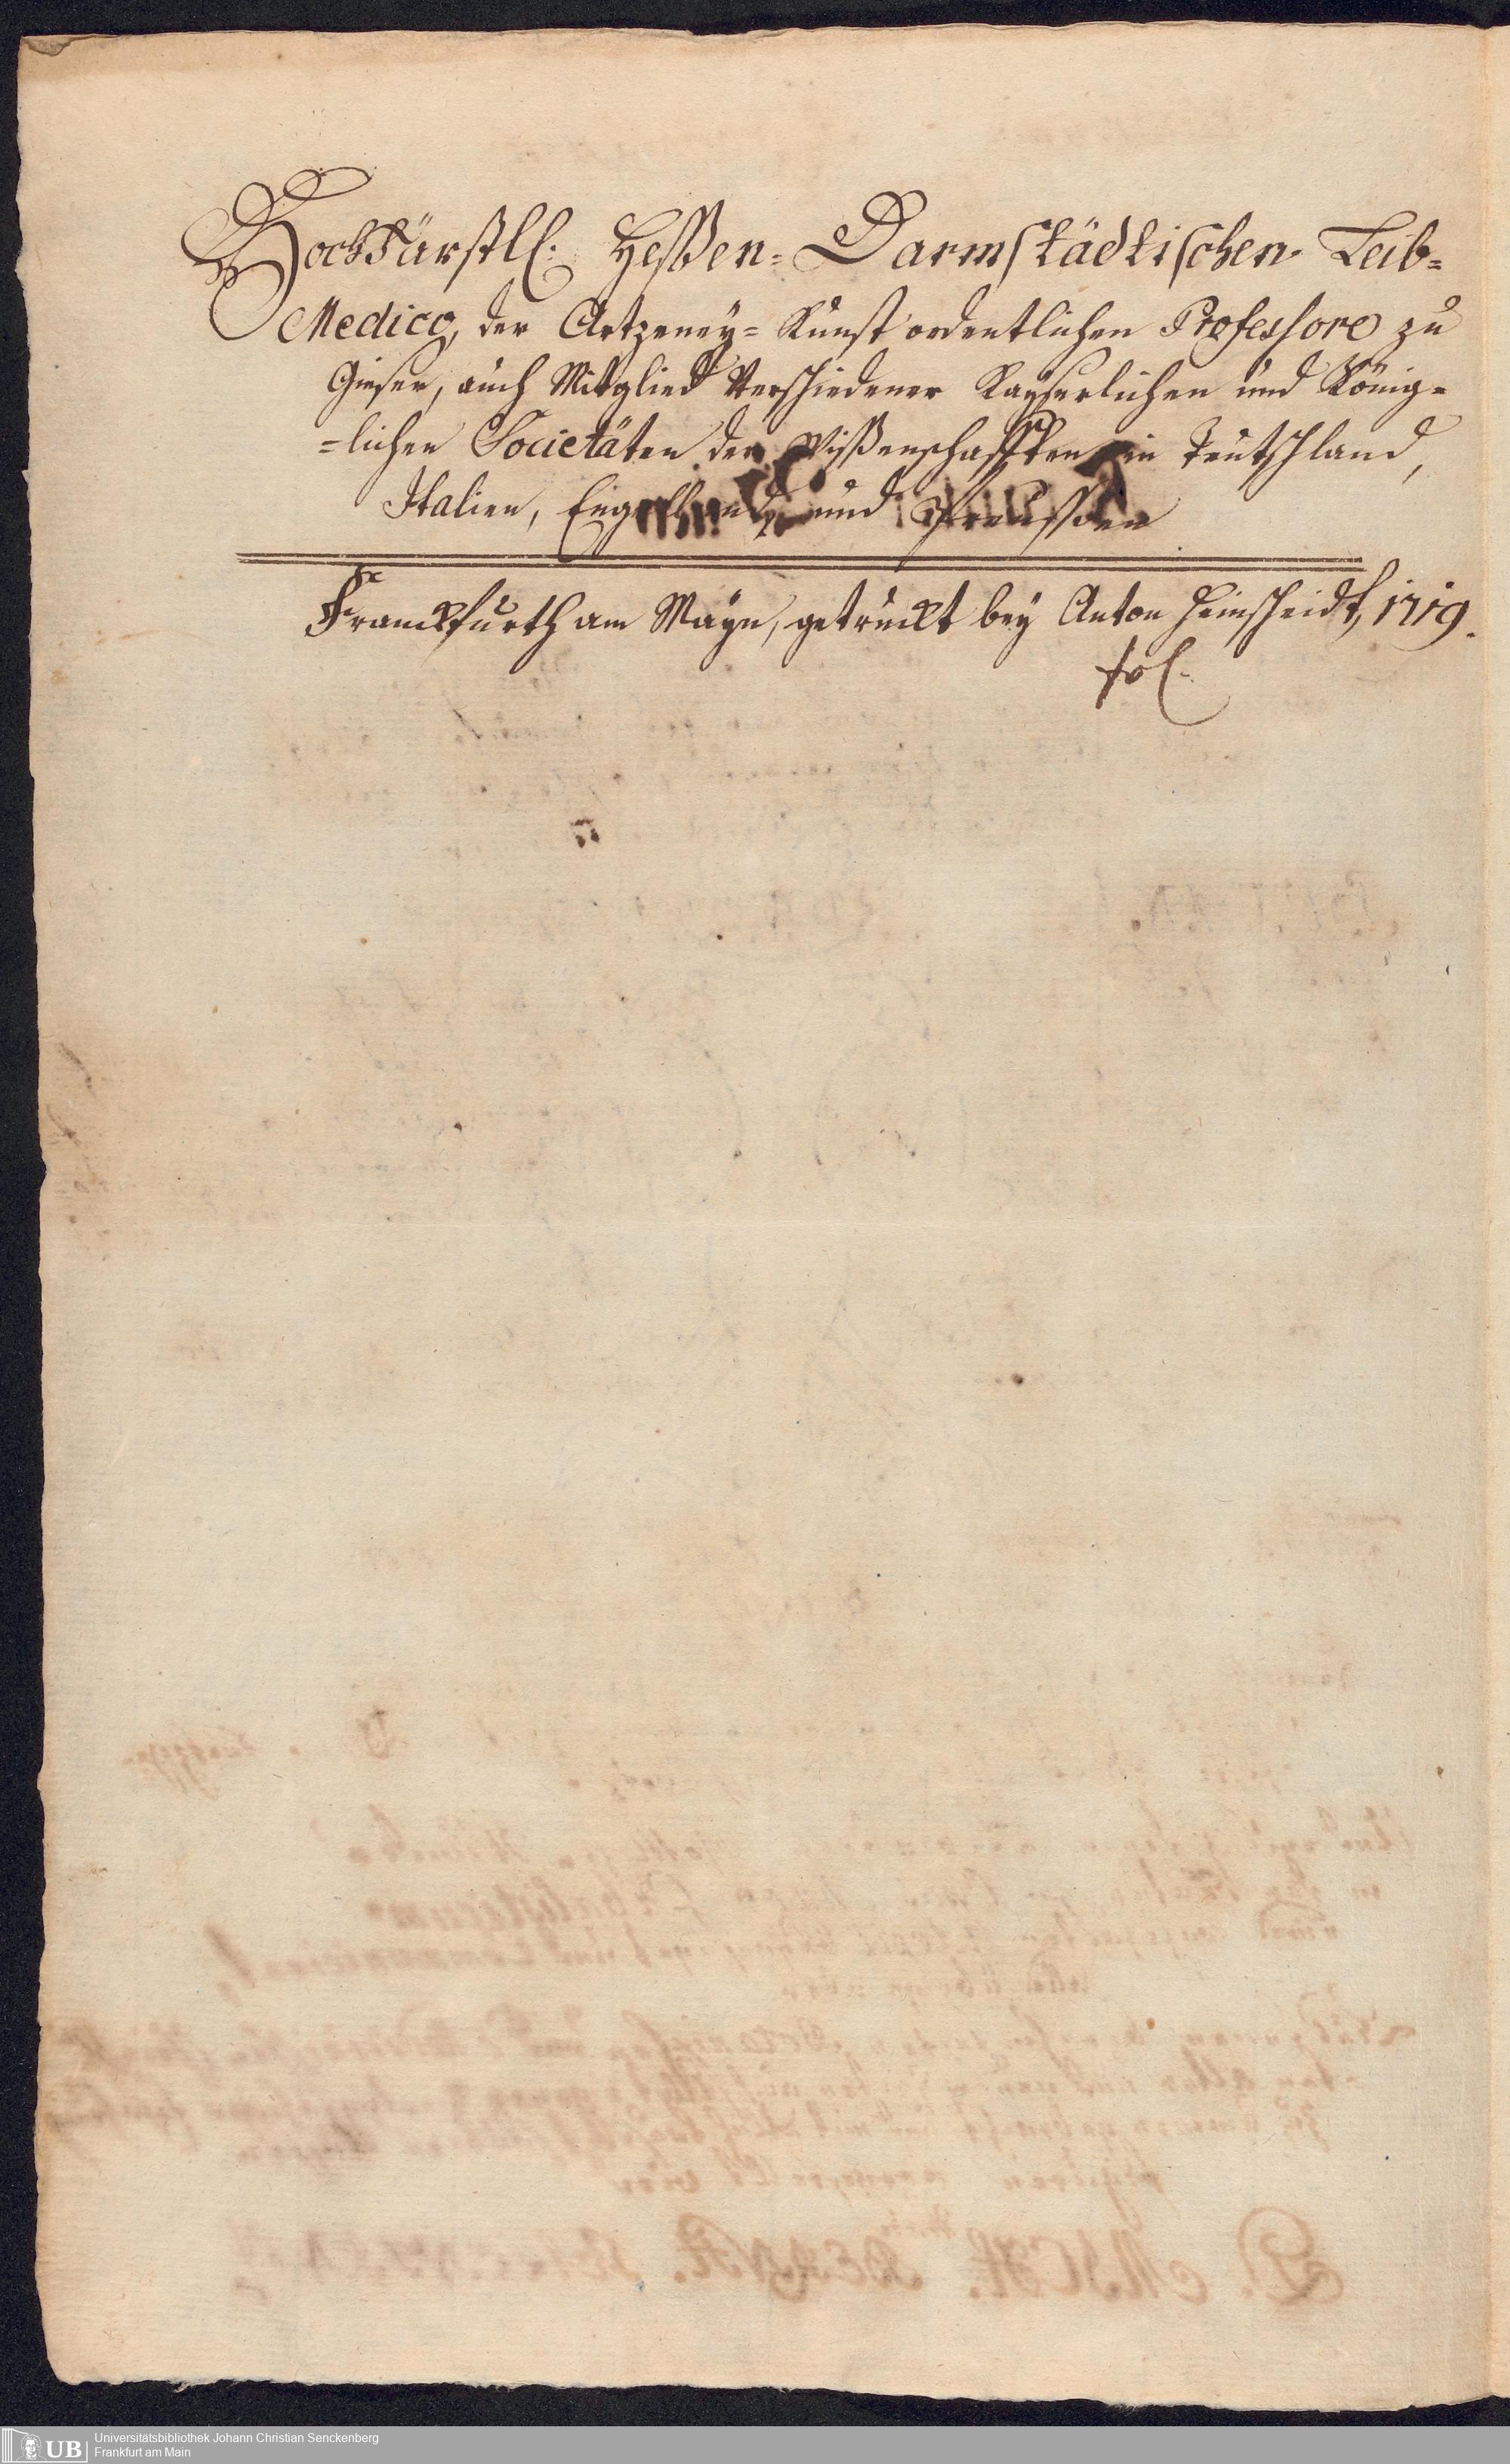 HochFürstl. Heßen-Darmstädtischen Leib-
Medico, der Artzeney-Kunst ordentlichen Professore zu
Giesen, auch Mitglied Verschiedener Kayserlichen und König-
-lichen Societäten der Wißenschafften in Teutschland,
Italien, Engelland und Preussen
Franckfurth am Mayn, getruckt bey Anton Heinscheidt, 1719.
fol.
UB
Universitätsbibliothek Johann Christian Senckenberg
Frankfurt am Main